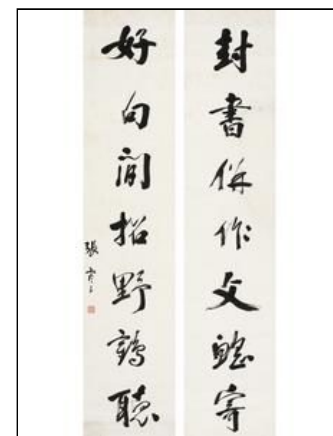 封書併作文鰩寄
好句閒招野鶴聽
張